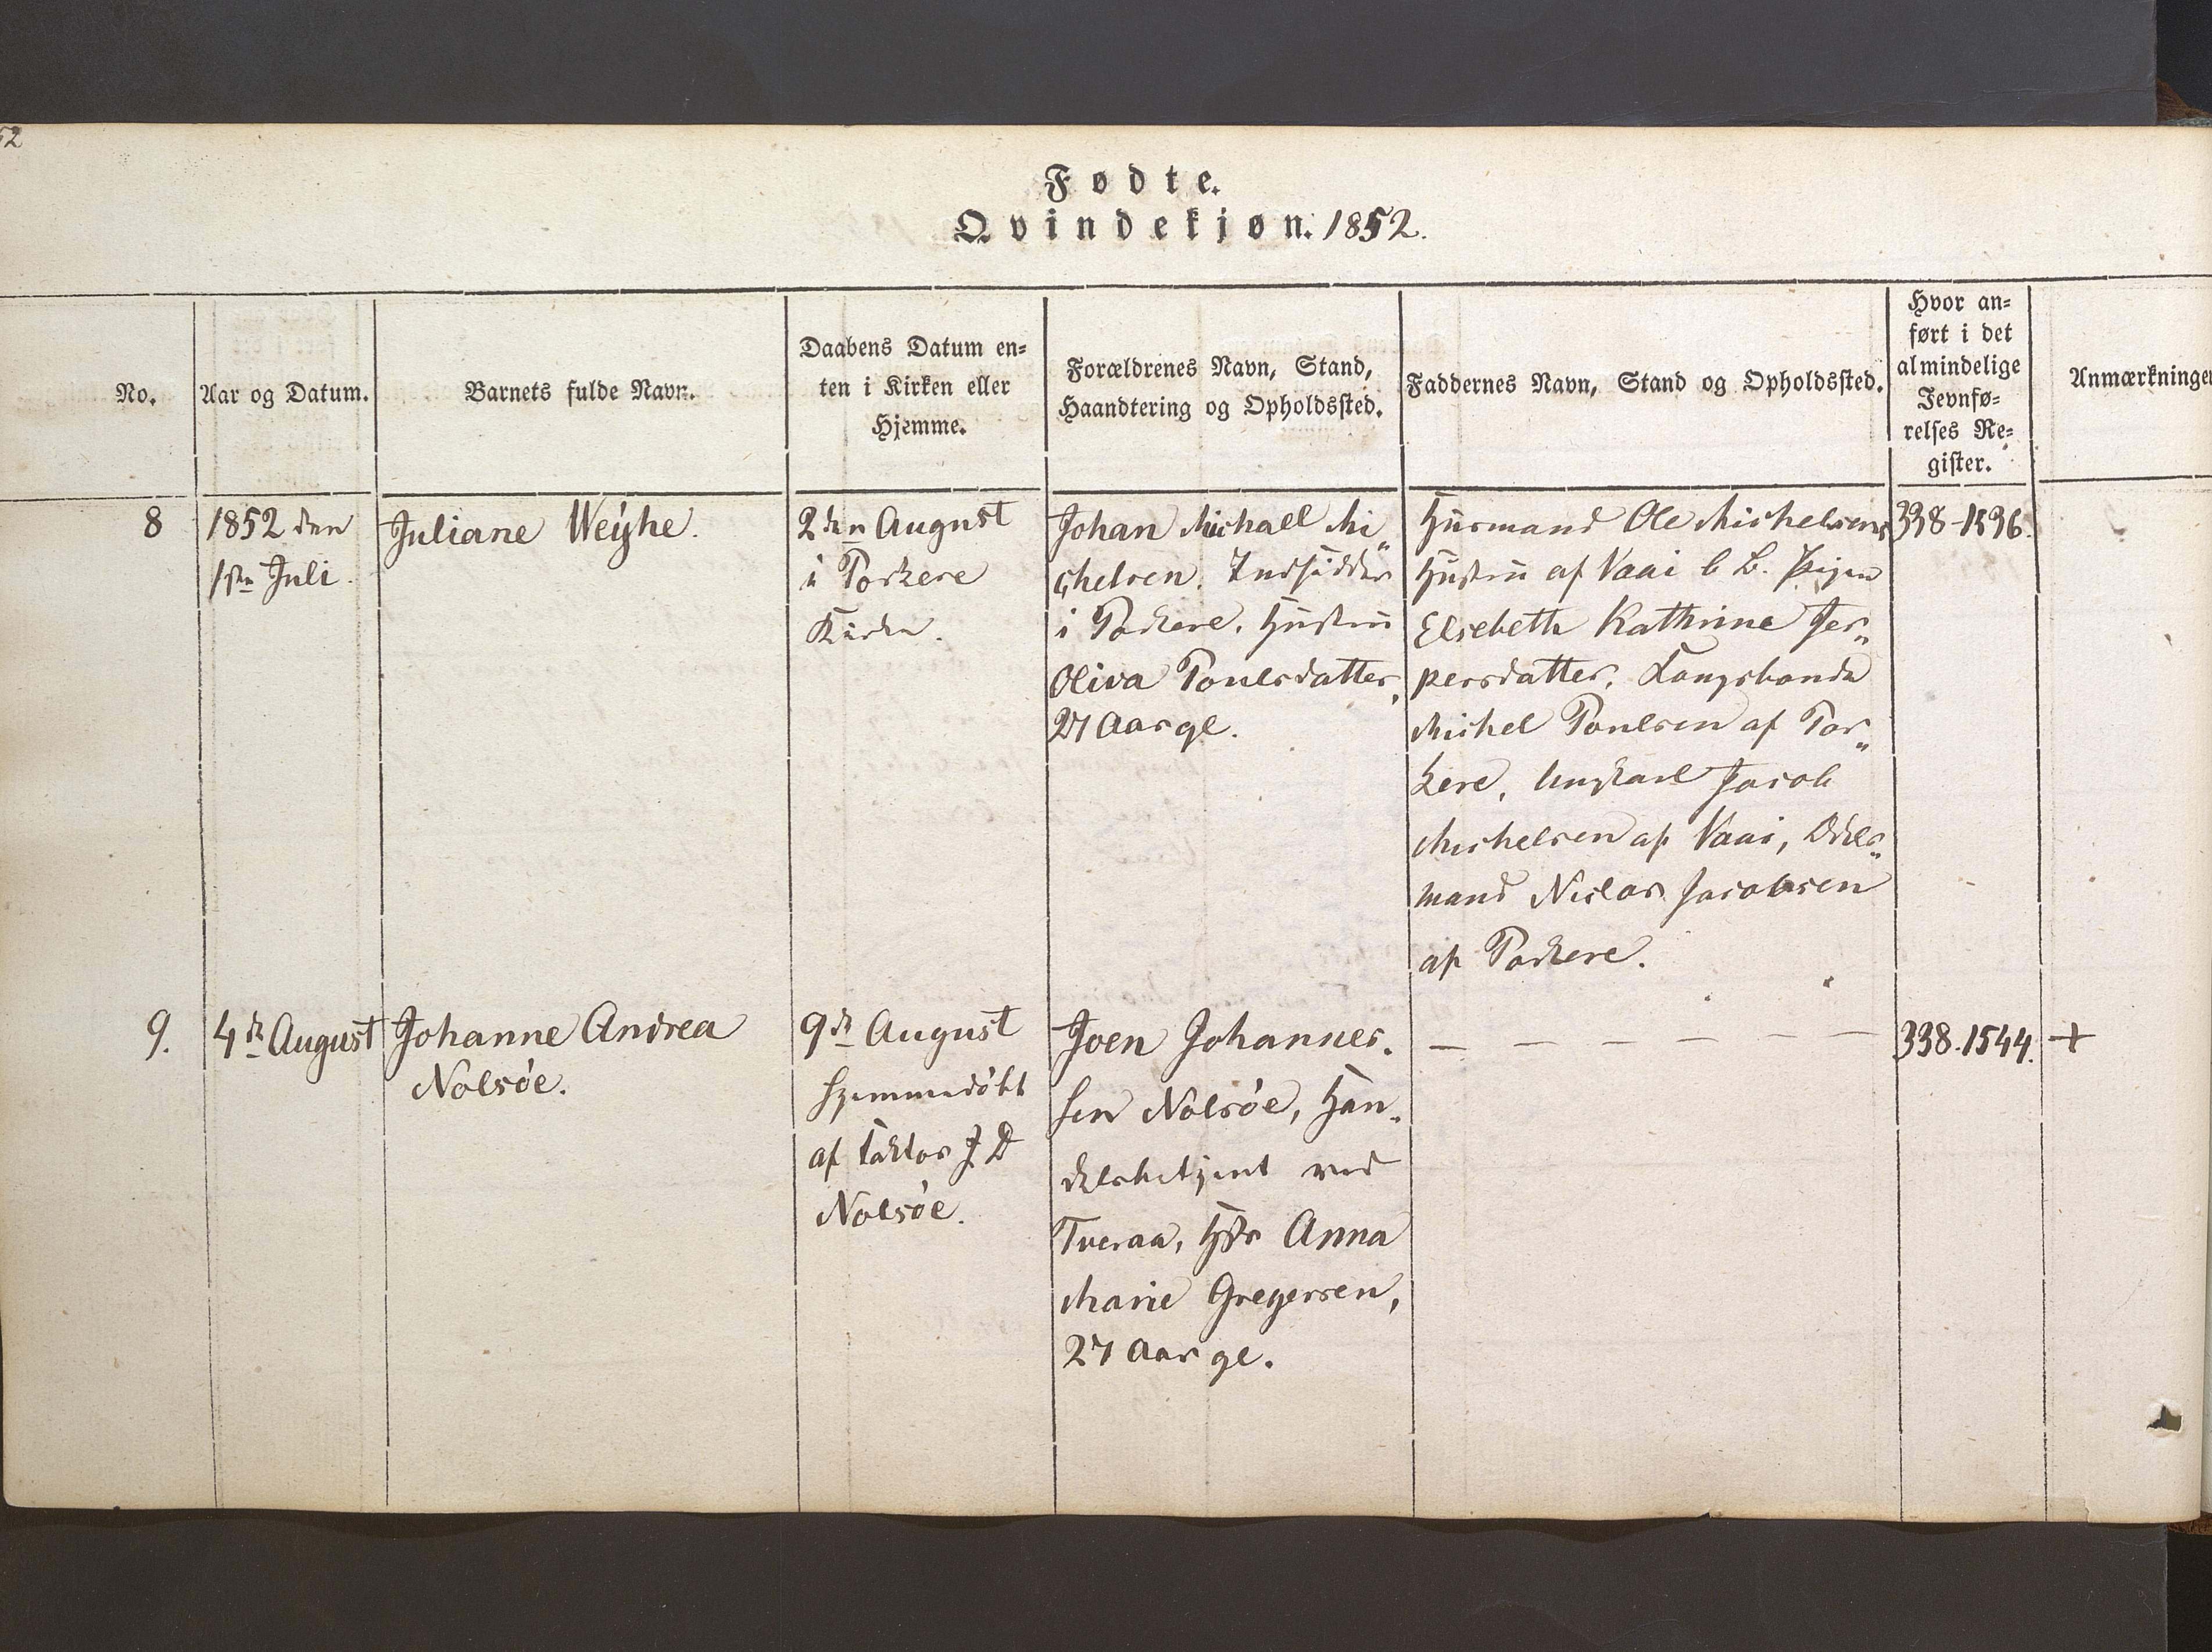 52
Fødte.
Qvindekjøn. 1852.
No.
Aar og Datum.
Barnets fulde Navn.
Daabens Datum en-
ten i Kirken eller
Hjemme.
Forældrenes Navn, Stand,
Haandtering og Opholdssted.
Faddernes Navn, Stand og Opholdssted.
Hvor an-
ført i det
almindelige
Jevnfø-
relses Re-
gister.
Anmærkninger
8
1852 den
1ste Juli.
Juliane Weyhe.
2den August
i Porkere
Kirke.
Johan Michall Mi„
chelsen. Indsidder
i Porkere. Hustru
Oliva Poulsdatter,
27 Aar gl.
Huusmand Ole Michelsens
Hustru af Vaai b. B. Pigen
Elsebeth Kathrine Jes„
persdatter, Kongsbonde
Michel Poulsen af Por„
kere, Ungkarl Jacob
Michelsen af Vaai, Odels„
mand Niclas Jacobsen
af Porkere.
338-1536.
9.
4de August
Johanne Andrea
Nolsöe.
9de August
hjemmedöbt
af Faktor J. D
Nolsöe.
Joen Johannes.
sen Nolsöe, Han„
delsbetjent ved
Tveraa, Hstr Anna
Marie Gregersen,
27 Aar gl.
— — — — — — —
338.1544.
+